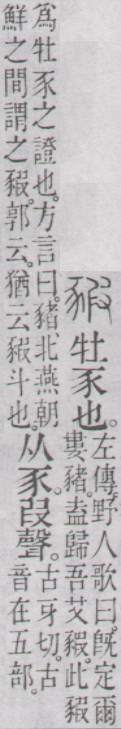 豭 牡豕也。
左傳。野人歌曰。旣定爾
婁豬。盍歸吾艾豭。此豭
爲牡豕之證也。方言曰。豬、北燕朝
鮮之間謂之豭。郭云。猶云豭斗也。
从豕。叚聲。
古牙切。古
音在五部。